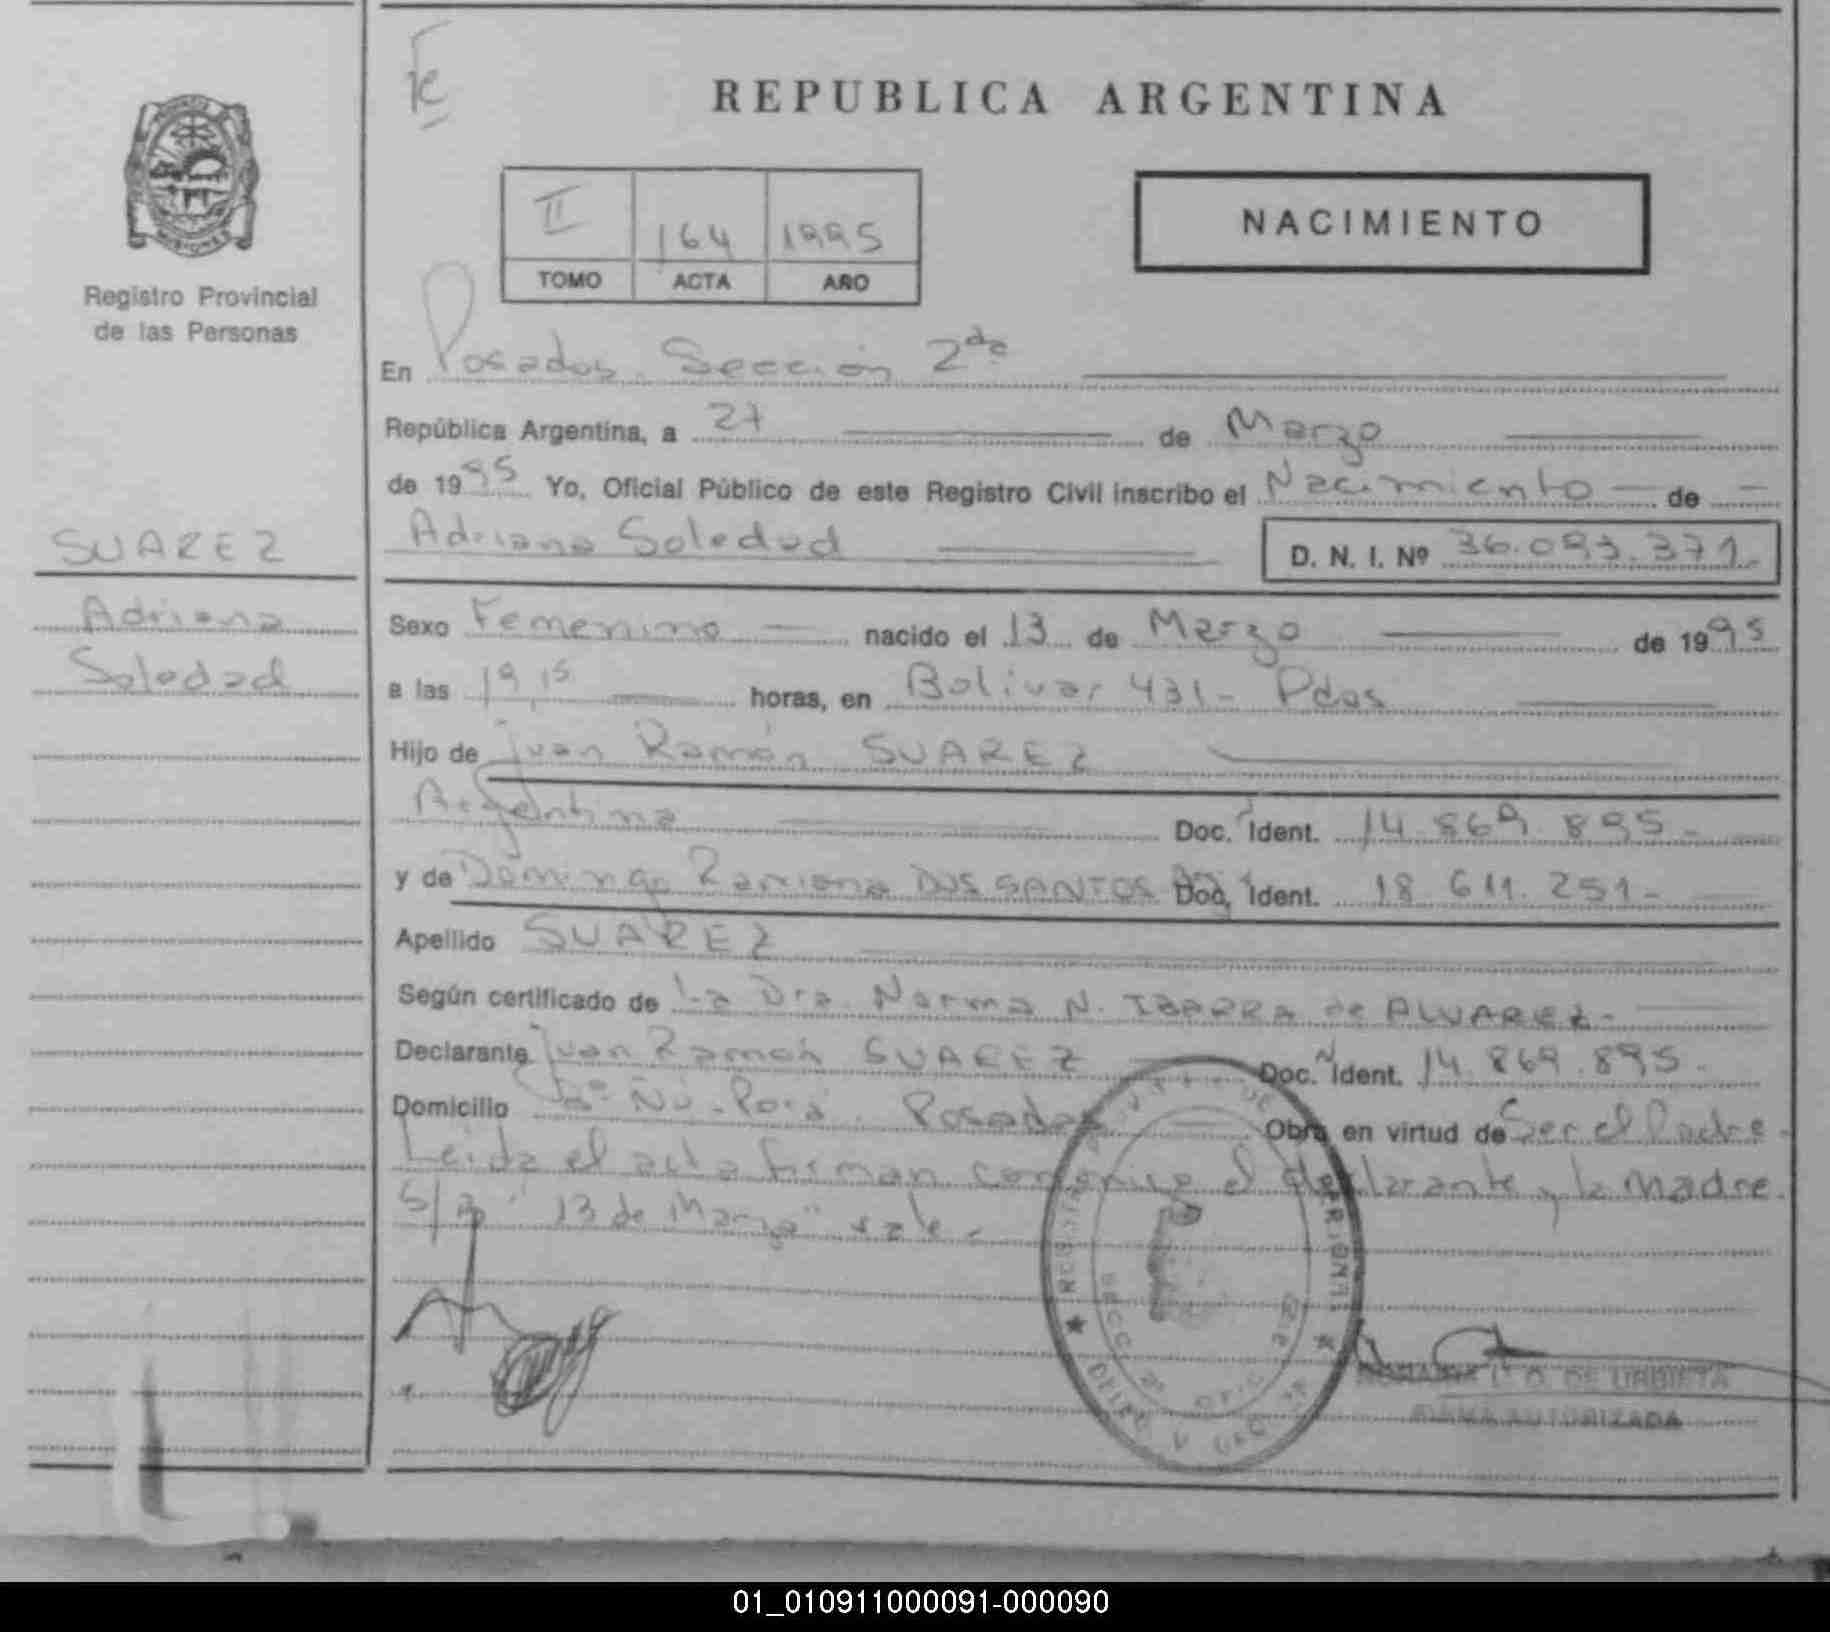 Fe
REPUBLICA ARGENTINA
MISIONES
II 164 1995
NACIMIENTO
TOMO ACTA AÑO
Registro Provincial
de las Personas
En Posadas Sección 2da
República Argentina, a 27 de Marzo
de 1995 Yo, Oficial Público de este Registro Civil inscribo el Nacimiento de
SUAREZ
Adriana Soledad D. N. I. Nº 36.093.371.
Adriana
Soledad
Sexo Femenino nacido el 13 de Marzo de 1995
a las 19,15 horas, en Bolivar 431- Pdas
Hijo de Juan Ramón SUAREZ
Argentina Doc. Ident. 14.869.895-
y de Ramona DOS SANTOS Doc. Ident. 18 611.251-
Apellido SUAREZ
Según certificado de La Dra. Norma N. IBARRA de ALVAREZ-
Declarante Juan Ramón SUAREZ Doc. Ident. 14.869.895-
Domicilio Bº Ñú-Porá. Posadas Obra en virtud de Ser el Padre-
Leida el acta firman conmigo el declarante y la Madre.
S/R "13 de Marzo" vale-
SECC. 2ª OFIC.
DE URDIETA
FIRMA AUTORIZADA
01_010911000091-000090